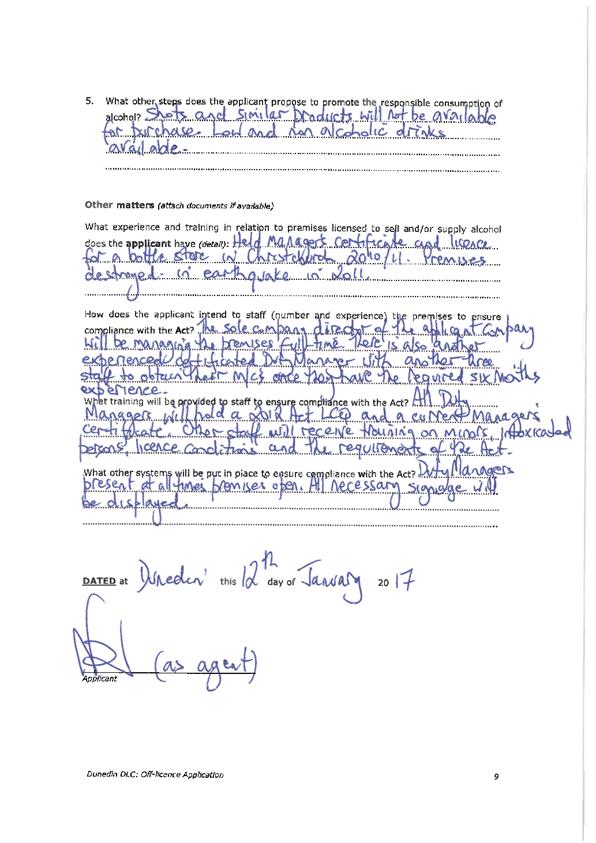 5. What other steps does the applicant propose to promote the responsible consumption of
alcohol? Shots and similar products will not be available
for purchase. Low and non alcoholic drinks
available.
Other matters (attach documents if available)
What experience and training in relation to premises licensed to sell and/or supply alcohol
does the applicant have (detail): Held Manager's certificate and licence
for a bottle store in Christchurch 2010/11. Premises
destroyed in earthquake in 2011
How does the applicant intend to staff (number and experience) the premises to ensure
compliance with the Act? The sole company director of the applicant Company
will be managing the premises full time. There is also another
experienced certificated Duty Manager with another three
staff to obtain their MCs once they have the required six months
experience.
What training will be provided to staff to ensure compliance with the Act? All Duty
Managers will hold a 2012 Act LCQ and a current Managers'
certificate. Other staff will receive training on minors, intoxicated
persons, licence conditions and the requirements of the Act.
What other systems will be put in place to ensure compliance with the Act? Duty Managers
present at all times premises open. All necessary signage will
be displayed.
DATED at Dunedin this 12th day of January 2017
(as agent)
Applicant
Dunedin DLC: Off-licence Application 9